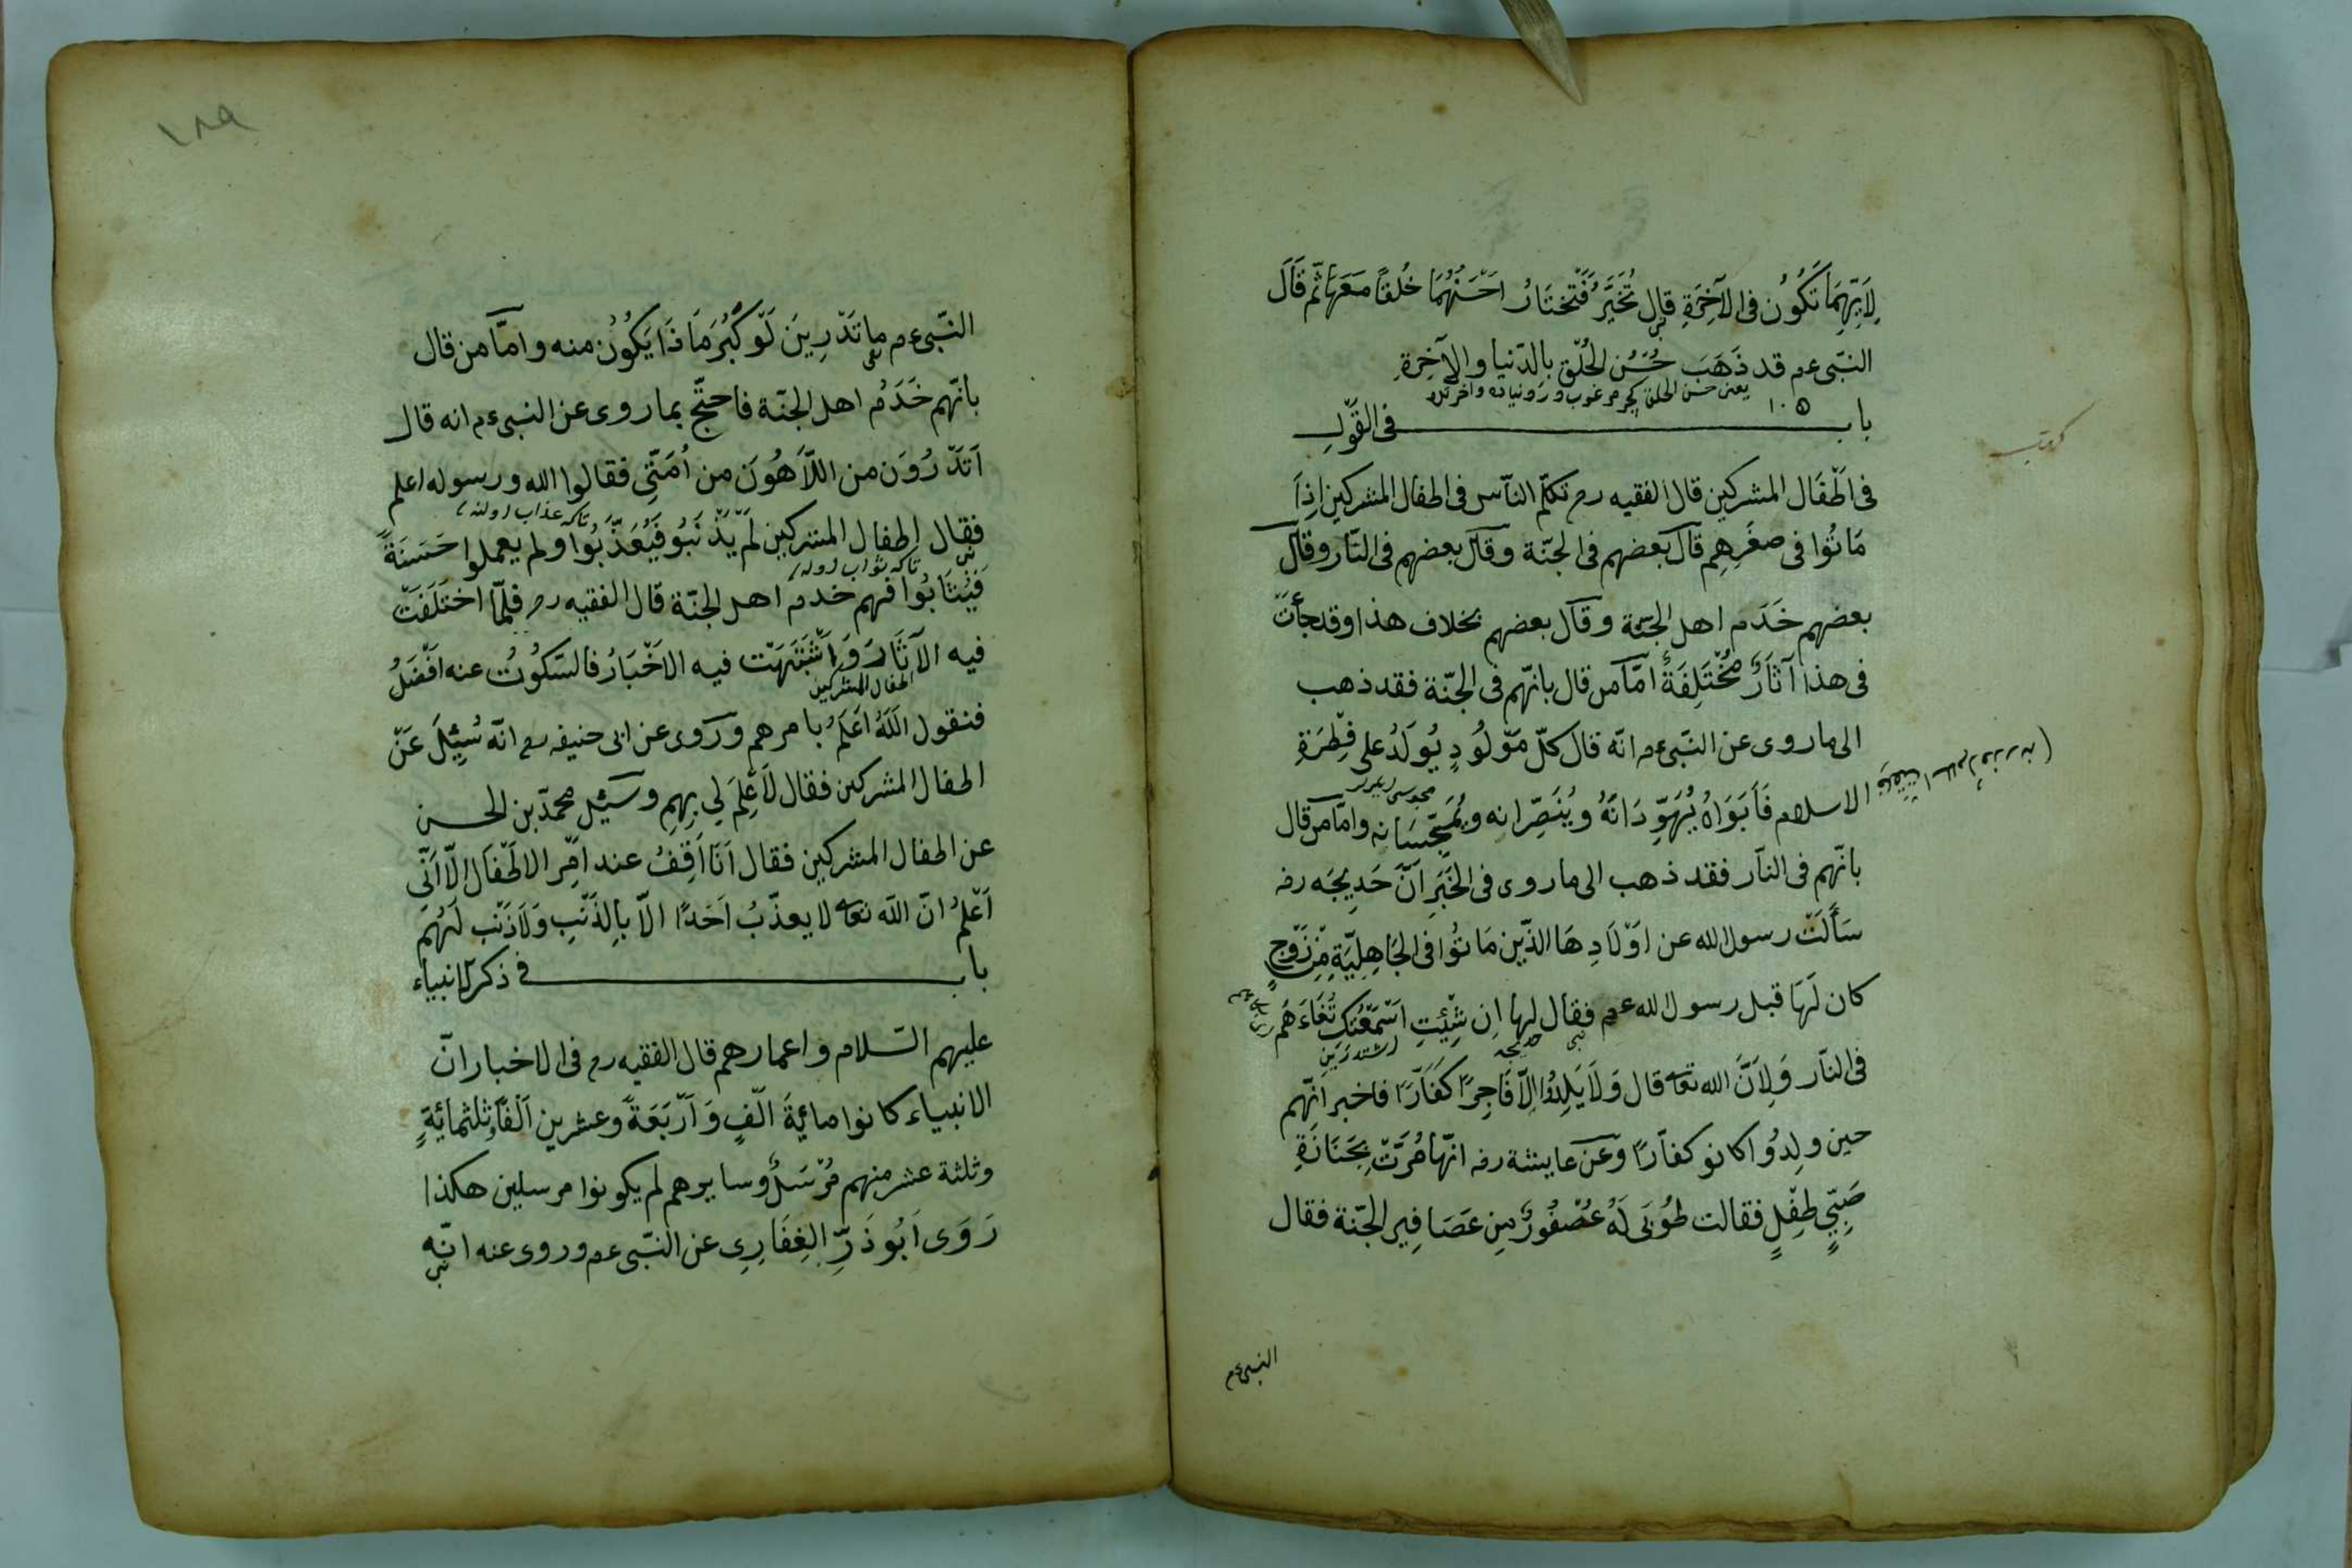 لِاَيِّهِمَا تَكُوُن فى الآخِرَةِ قال تُخَيَّرُ فَتَختَارُ اَحْسَنُهُمَا خُلقًا مَعَهَا ثّم قَالَ
النبّى عم قد ذَهَبَ حُسْنُ الخُلْق بالدّنيا والآخِرةِ
باب فى القَوْلِ
فى اَطْفَال المشركين قال الفقيه رح تكلّم النّاس فى اطفال المشركين اِذَا
مَاتُوا فى صغَرِهِم قال بعضهم فى الجنّة وقال بعضهم فى النّار وقال
بعضهم خَدَم اهل الجنّة وقال بعضهم بخلاف هذا وقد جأت
فى هذا آثَارٌ مُخْتَلِفَةٌ امَّا من قال بانّهم فى الجنّة فقد ذهب
الى ما روى عن النّبى عم انّه قال كلّ مَوْلُودٍ يُولَدُ على فِطْرَةِ
الاسلام فَاَبَوَاهُ يُهَوِّدَانَهُ ويُنَصِّرانه ويُمَجّسَانه وامّا من قال
بانّهم فى النّار فقد ذهب الى ما روى فى الخَبَرِ اَنَّ خَدِيجَه رضه
سَأَلَتْ رسول الله عن اَوْلَادِهَا الذّين مَاتُوا فى الجَاهِلِيّةِ مِنْ زَوْجٍ
كان لَهَا قبل رسول الله عم فقال لها اِن شِئتِ اَسْمَعْتُكِ ثُغَاءَهُم
فى النّار وَلِاَنَّ الله تعا قال وَلَا يَلِدُوا اِلّا فَاجِرًا كَفّارًا فاخبر انّهم
حين ولِدُوا كانو كفّارًا وعن عايشة رضه انّها مُرَّتْ بِجَنَازَةِ
صَبِّيٍ طِفْلٍ فقالت طُوبَى لَهُ عُصْفُورٌ مِن عَصَافِير الجنّة فقال
النبى عم
١٨٩
النّبى عم ما تَدْرِينَ لَوْ كَبُرَ مَا ذَا يَكُونُ منه وامّا من قال
بانّهم خَدَمُ اهل الجنّة فاحتجّ بما روى عن النبى عم انه قال
اَتَدْرُوَن من اللّاَهُونَ من اُمَتّىِ فقالوا الله ورسوله اعلم
فقال اطفال المشركين لَمْ يَذْنَبُو فَيُعَذّبُوا ولم يعملوا حَسَنَةً
فَيُثَابُوا فهم خدم اهل الجنّة قال الفقيه رح فلمّا اختَلَفَتْ
فيه الآثَارَ وَاَشْتَبَهَت فيه الاَخْبَارُ فالسّكُوتُ عنه افْضَلُ
اطفال المشركين
فنقول اَللّهُ اَعْلَمُ بامرهم وروى عن ابى حنيفه رح انّه سُئِلَ عَنْ
اطفال المشركين فقال لَاعِلْمَ لِي بِهِمِ وسئِل محمدّ بن الحسن
عن اطفال المشركين فقال اَنَا اَقِفُ عند اَمْرِ الاَطْفَال اِلّا اَنّى
اَعْلَمُ انّ الله تعا لا يعذّبُ اَحَدًا الاّ بِالذَنْبِ وَلَاذَنْب لَهُمْ
باب فى ذكر الانبياء
عليهم السّلام واعمارهم قال الفقيه رح فى الاخبار انّ
الانبياء كانوا مائِةَ اَلْفٍ وَاَرْبَعَةً وعشرين اَلْفًا وثلثمائِةٍ
وثلثة عشر منهم مُرْسَلٌ وسايرهم لم يكونوا مرسلين هكذا
رَوَى اَبُو ذَرِّ الغِفَارِىِ عن النبّى عم وروى عنه انّه